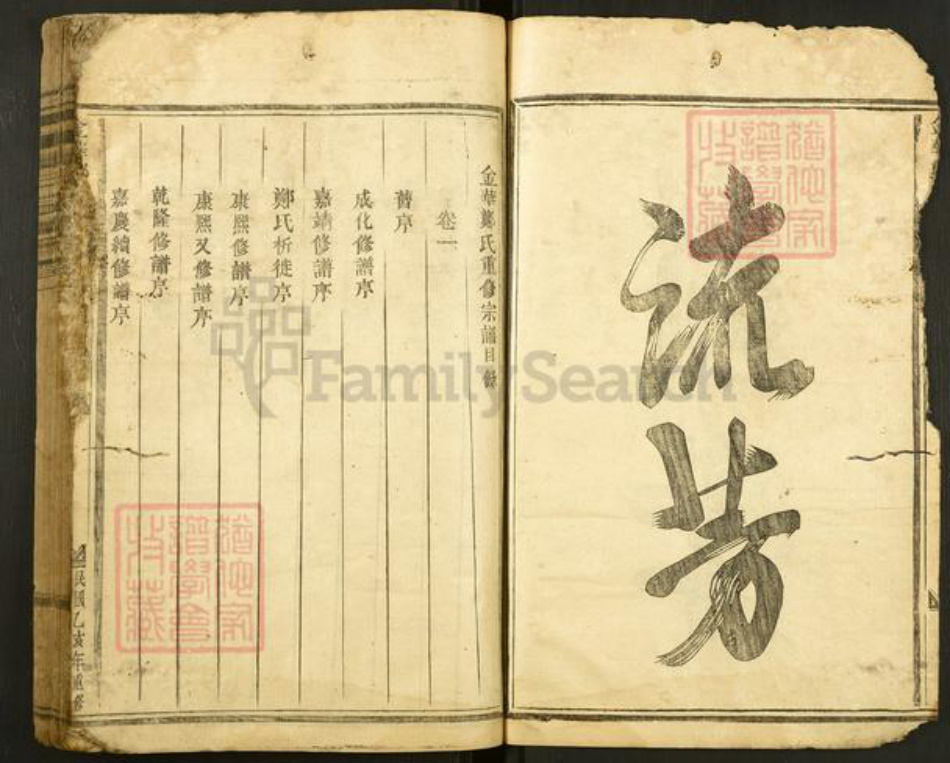 流芳
金華鄭氏重修宗譜目錄
卷一
舊序
成化修譜序
嘉靖修譜序
鄭氏析徙序
康熙修譜序
康熙又修譜序
乾隆修譜序
嘉慶續修譜序
民國乙亥年重修
猶他家譜學會收藏
猶他家譜學會收藏
FamilySearch